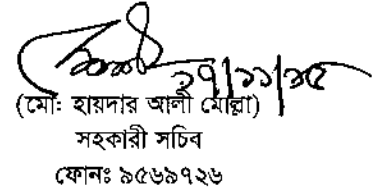 ২৭/১১/১৫
(মোঃ হায়দার আলী মোল্লা)
সহকারী সচিব
ফোনঃ ৯৫৬৯৭২৬